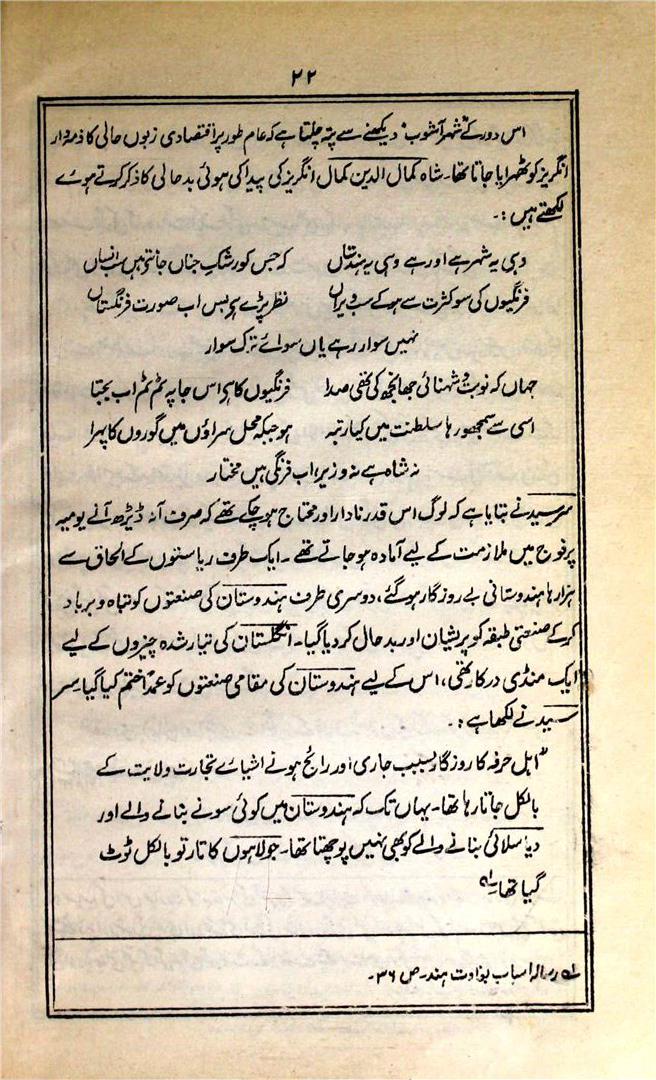 ۲۲
اس دور کے "شہر آشوب" دیکھنے سے پتہ چلتا ہے کہ عام طور پر اقتصادی زبوں حالی کا ذمہ دار
انگریز کو ٹھہرایا جاتا تھا۔ شاہ کمال الدین کمال انگریز کی پیدا کی ہوئی بدحالی کا ذکر کرتے ہوئے
لکھتے ہیں:۔
وہی یہ شہر ہے اور ہے وہی یہ ہندستاں کہ جس کو رشکِ جناں جانتے ہیں سب انساں
فرنگیوں کی سو کثرت سے ہو کے سب ویراں نظر پڑے ہی بس اب صورت فرنگستاں
نہیں سوار رہے یاں سوائے ترک سوار
جہاں کہ نوبت و شہنائی جھانجھ کی تھی صدا فرنگیوں کا ہی اس جا پہ ٹم ٹم اب بجتا
اسی سے سمجھو رہا سلطنت میں کیا رتبہ ہو جبکہ محل سراؤں میں گوروں کا پہرا
نہ شاہ ہے نہ وزیر اب فرنگی ہیں مختار
سرسید نے بتایا ہے کہ لوگ اس قدر نادار اور محتاج ہو چکے تھے کہ صرف آنہ ڈیڑھ آنے یومیہ
پر فوج میں ملازمت کے لیے آمادہ ہو جاتے تھے۔ ایک طرف ریاستوں کے الحاق سے
ہزارہا ہندوستانی بے روزگار ہو گئے، دوسری طرف ہندوستان کی صنعتوں کو تباہ و برباد
کر کے صنعتی طبقہ کو پریشان اور بدحال کر دیا گیا۔ انگلستان کی تیار شدہ چیزوں کے لیے
ایک منڈی درکار تھی، اس کے لیے ہندوستان کی مقامی صنعتوں کو عمداً ختم کیا گیا۔ سر
سید نے لکھا ہے:۔
"اہل حرفہ کا روزگار بسبب جاری اور رائج ہونے اشیائے تجارت ولایت کے
بالکل جاتا رہا تھا۔ یہاں تک کہ ہندوستان میں کوئی سوئے بنانے والے اور
دیا سلائی بنانے والے کو بھی نہیں پوچھتا تھا۔ جولاہوں کا تار تو بالکل ٹوٹ
گیا تھا۔"؂۱
؂۱ رسالہ اسباب بغاوت ہند۔ ص ۳۶۔